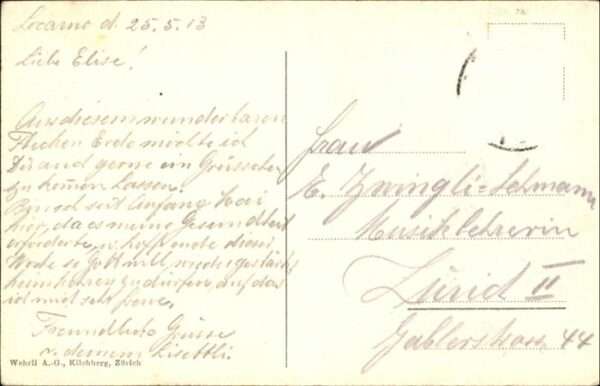 Locarno d. 25.5.13
Liebe Elise!
Aus diesem wunderbaren
Flecken Erde möchte ich
Dir auch gerne ein Grüsschen
zu kommen lassen.
Bin seit Anfang Mai
hier, da es meine Gesundheit
erforderte, u. hoffe ende dieser
Woche so Gott will wieder gestärkt
heimkehren zu dürfen, auf das
ich mich sehr freue.
Freundliche Grüsse
v. deinem Lisettli.
Wehrli A.-G., Kilchberg, Zürich
Frau
E. Zwingli-Lehmann
Musiklehrerin
Zürich II
Gablerstrass. 44